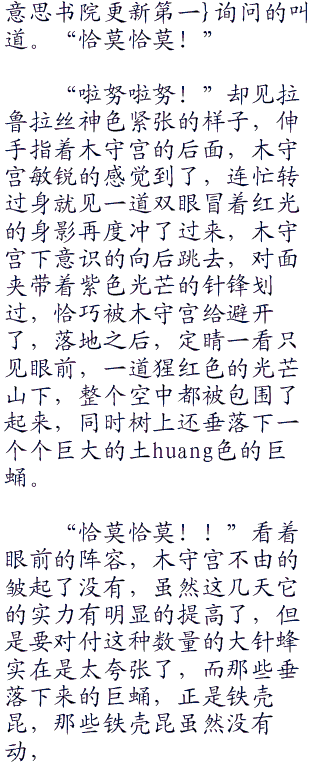 意思书院更新第一}询问的叫
道。“恰莫恰莫！”
“啦努啦努！”却见拉
鲁拉丝神色紧张的样子，伸
手指着木守宫的后面，木守
宫敏锐的感觉到了，连忙转
过身就见一道双眼冒着红光
的身影再度冲了过来，木守
宫下意识的向后跳去，对面
夹带着紫色光芒的针锋划
过，恰巧被木守宫给避开
了，落地之后，定睛一看只
见眼前，一道猩红色的光芒
山下，整个空中都被包围了
起来，同时树上还垂落下一
个个巨大的土huang色的巨
蛹。
“恰莫恰莫！！”看着
眼前的阵容，木守宫不由的
皱起了没有，虽然这几天它
的实力有明显的提高了，但
是要对付这种数量的大针蜂
实在是太夸张了，而那些垂
落下来的巨蛹，正是铁壳
昆，那些铁壳昆虽然没有
动，